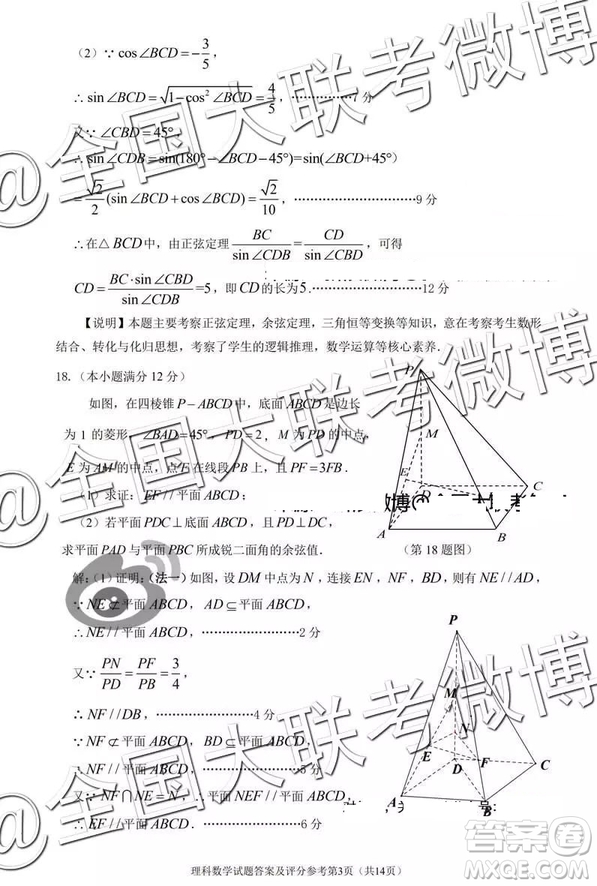 （2）∵ cos∠BCD=−3/5，
∴ sin∠BCD=√(1−cos²∠BCD)=4/5，……………7分
又∵ ∠CBD=45°，
∴ sin∠CDB=sin(180°−∠BCD−45°)=sin(∠BCD+45°)
=√2/2(sin∠BCD+cos∠BCD)=√2/10，……………………………9分
∴在△BCD中，由正弦定理 BC/sin∠CDB=CD/sin∠CBD，可得
CD=BC·sin∠CBD/sin∠CDB=5，即CD的长为5.…………………………12分
【说明】本题主要考察正弦定理，余弦定理，三角恒等变换等知识，意在考察考生数形
结合、转化与化归思想，考察了学生的逻辑推理，数学运算等核心素养．
18.（本小题满分12分）
如图，在四棱锥P−ABCD中，底面ABCD是边长
为1的菱形，∠BAD=45°，PD=2，M为PD的中点，
E为AM的中点，点F在线段PB上，且PF=3FB．
（1）求证：EF//平面ABCD；
（2）若平面PDC⊥底面ABCD，且PD⊥DC，
求平面PAD与平面PBC所成锐二面角的余弦值．
P
M
E
D
C
A
B
（第18题图）
解：（1）证明：（法一）如图，设DM中点为N，连接EN，NF，BD，则有NE//AD，
∵NE⊄平面ABCD，AD⊆平面ABCD，
∴NE//平面ABCD，……………………2分
又∵ PN/PD=PF/PB=3/4，
∴NF//DB，……………………4分
∵NF⊄平面ABCD，BD⊆平面ABCD，
∴NF//平面ABCD，……………………5分
又∵NF∩NE=N，∴平面NEF//平面ABCD，
∴EF//平面ABCD，……………………6分
P
M
N
E
F
D
C
A
B
理科数学试题答案及评分参考第3页（共14页）
@全国大联考微博
@全国大联考微博
@全国大联考微博
答案圈
MXQE.COM